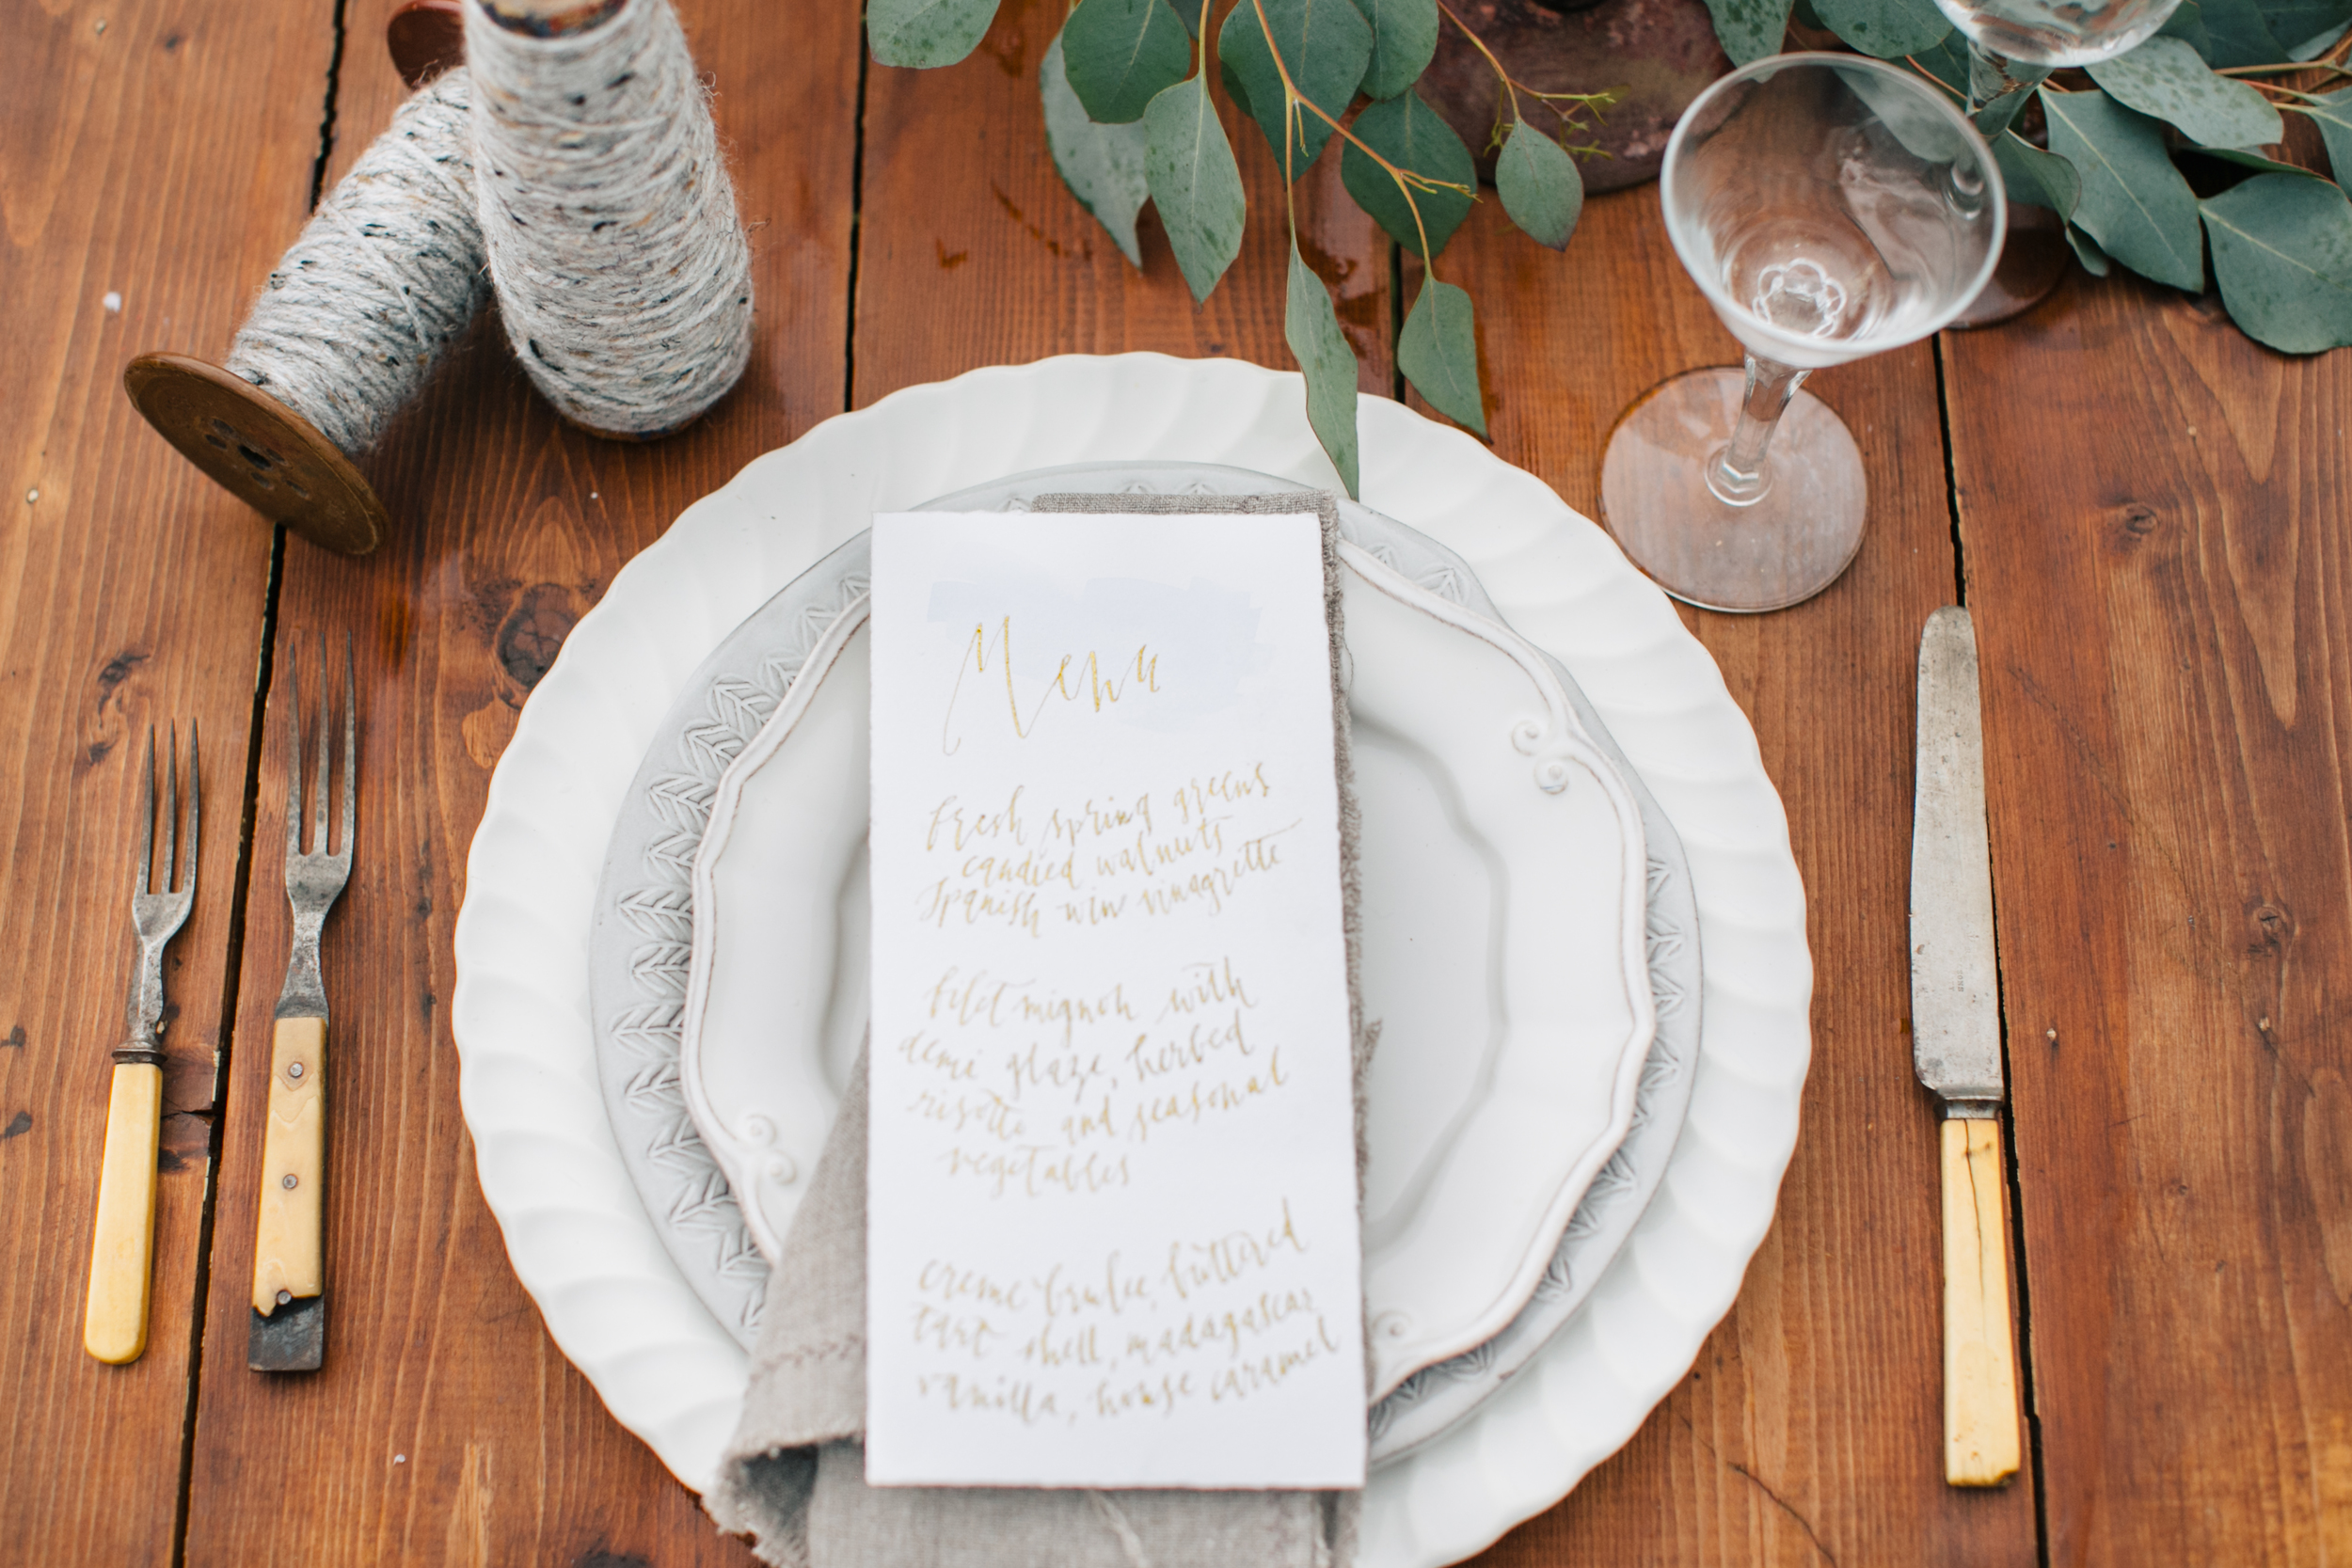 Menu
fresh spring greens
candied walnuts
Spanish wine vinagrette
filet mignon with
demi glaze, herbed
risotto and seasonal
vegetables
creme brulee, buttered
tart shell, madagascar
vanilla, house caramel